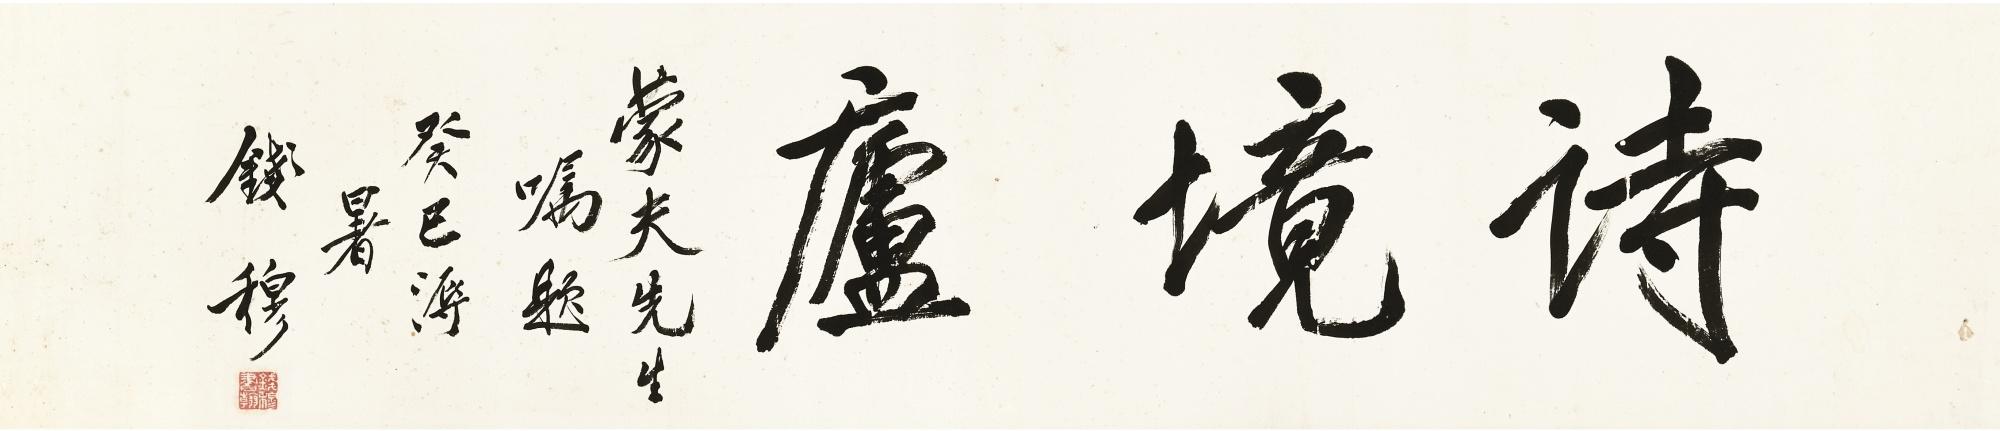 詩境廬
蒙夫先生
囑題
癸巳溽
暑
錢穆
錢穆
書翰